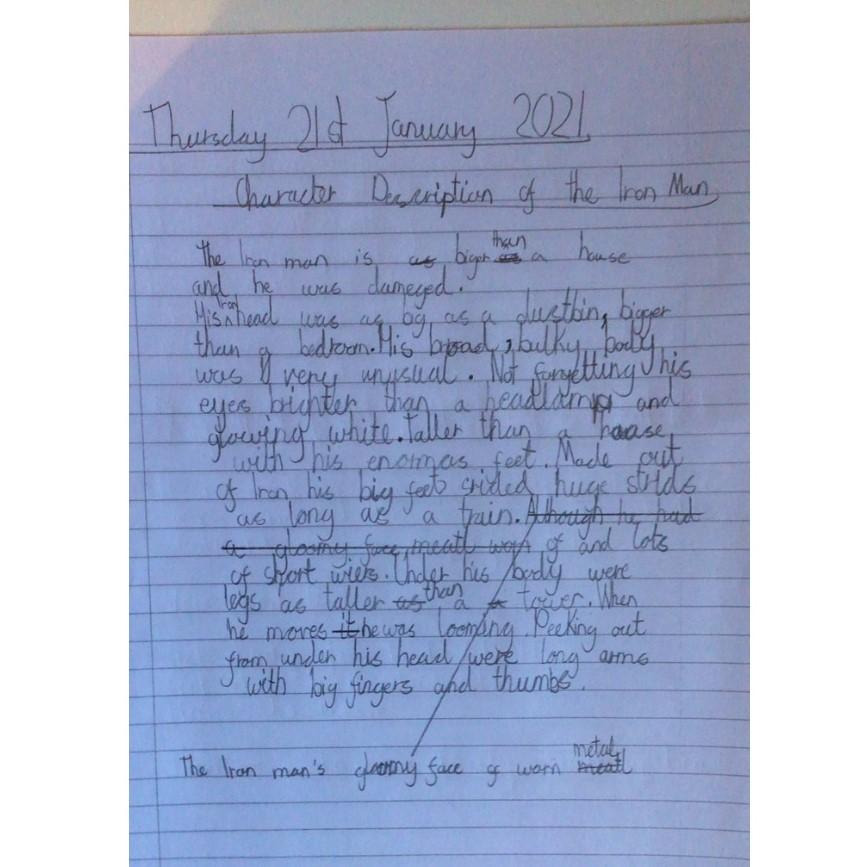 Thursday 21st January 2021
Character Description of the Iron Man
The Iron man is as biger than as a house
and he was dameged.
His Iron head was as big as a dustbin, bigger
than a bedroom. His broad, bulky body
was very unusual. Not forgetting his
eyes brighter than a headlamp and
glowing white. Taller than a house,
with his enormas feet. Made out
of Iron his big feet crided huge strids
as long as a train. Although he had
a gloomy face, meatl worn of and lots
of short wiers. Under his body were
legs as taller as than a tower. When
he moves it he was looming. Peeking out
from under his head were long arms
with big fingers and thumbs.
The Iron man's gloomy face of worn metal meatl